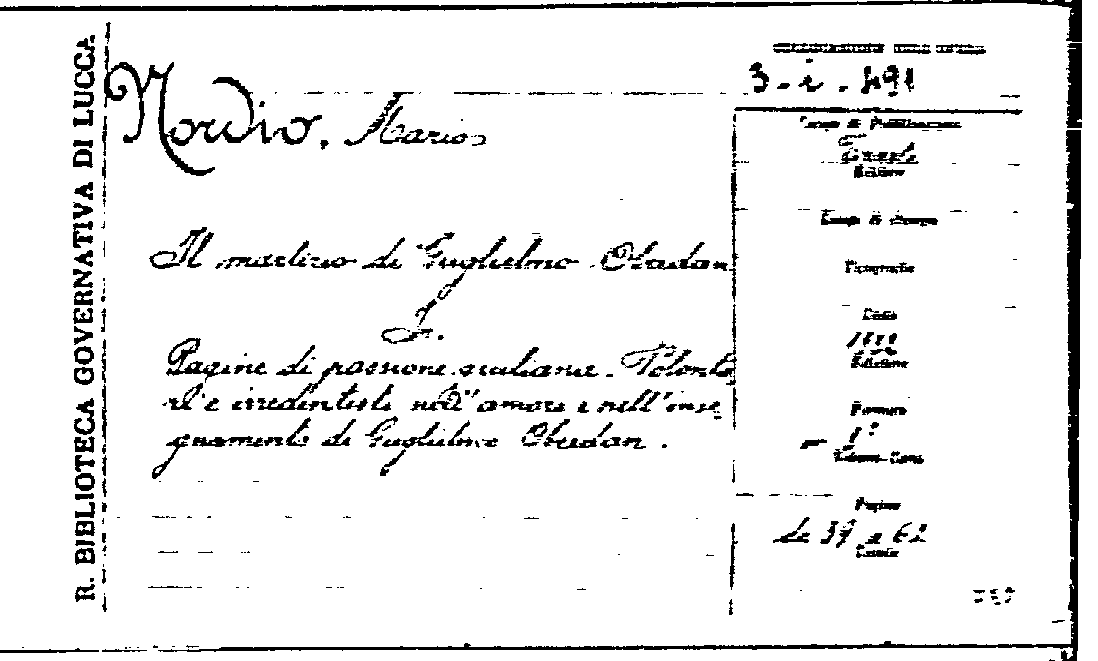 R. BIBLIOTECA GOVERNATIVA DI LUCCA
Nordio, Mario
Il martirio di Guglielmo Oberdan
I.
Pagine di passione giuliana. Volonta
ri e irredentisti nell'amore e nell'inse
gnamento di Guglielmo Oberdan.
3 - i - 491
Luogo di Pubblicazione
Edizione
Luogo di stampa
Tipografia
Data
Edizione
Formato
Pagine
da 39 a 62
Tavole